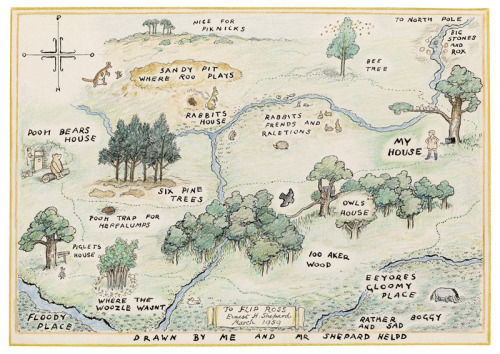 NICE FOR
PIKNICKS
TO NORTH POLE
BIG
STONES
AND
ROX
BEE
TREE
SANDY PIT
WHERE ROO PLAYS
RABBITS
HOUSE
RABBITS
FRENDS AND
RALETIONS
POOH BEARS
HOUSE
MY
HOUSE
SIX PINE
TREES
POOH TRAP FOR
HEFFALUMPS
OWLS
HOUSE
PIGLETS
HOUSE
100 AKER
WOOD
WHERE THE
WOOZLE WASNT
EEYORES
GLOOMY
PLACE
FLOODY
PLACE
TO FLIP ROSS
Ernest H. Shepard
March 1959
RATHER BOGGY
AND SAD
DRAWN BY ME AND MR SHEPARD HELPD